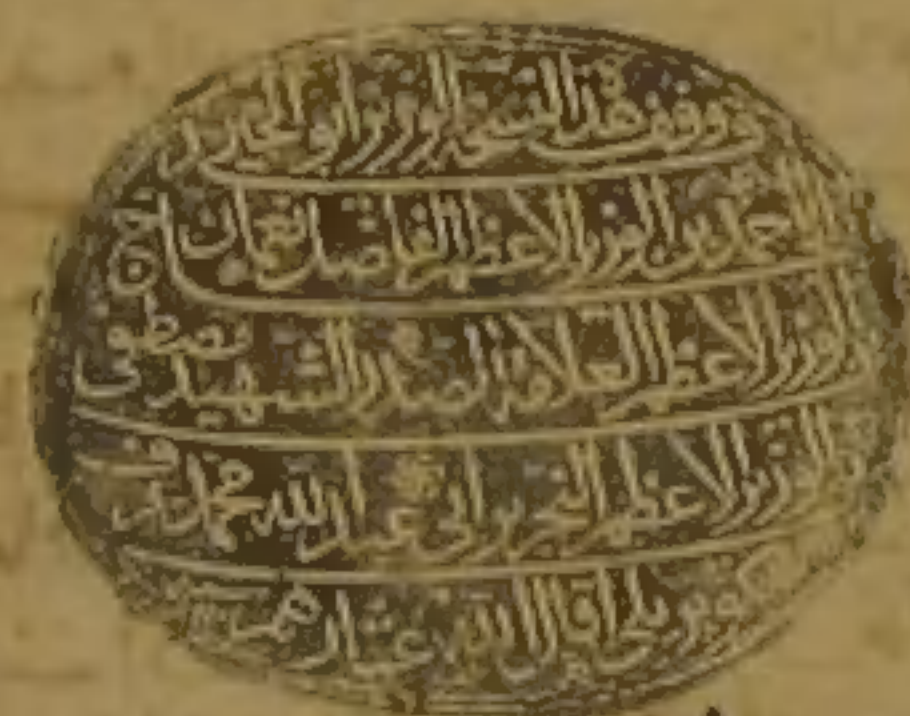 قد وقف هذه النسخة الوزير ابو الخير
احمد بن الوزير الاعظم الفاضل نعمان
بن الوزير الاعظم العلامة الصدر الشهيد مصطفى
بن الوزير الاعظم النحرير ابى عبد الله محمد عرف
بكوبريلى اقال الله عثارهم